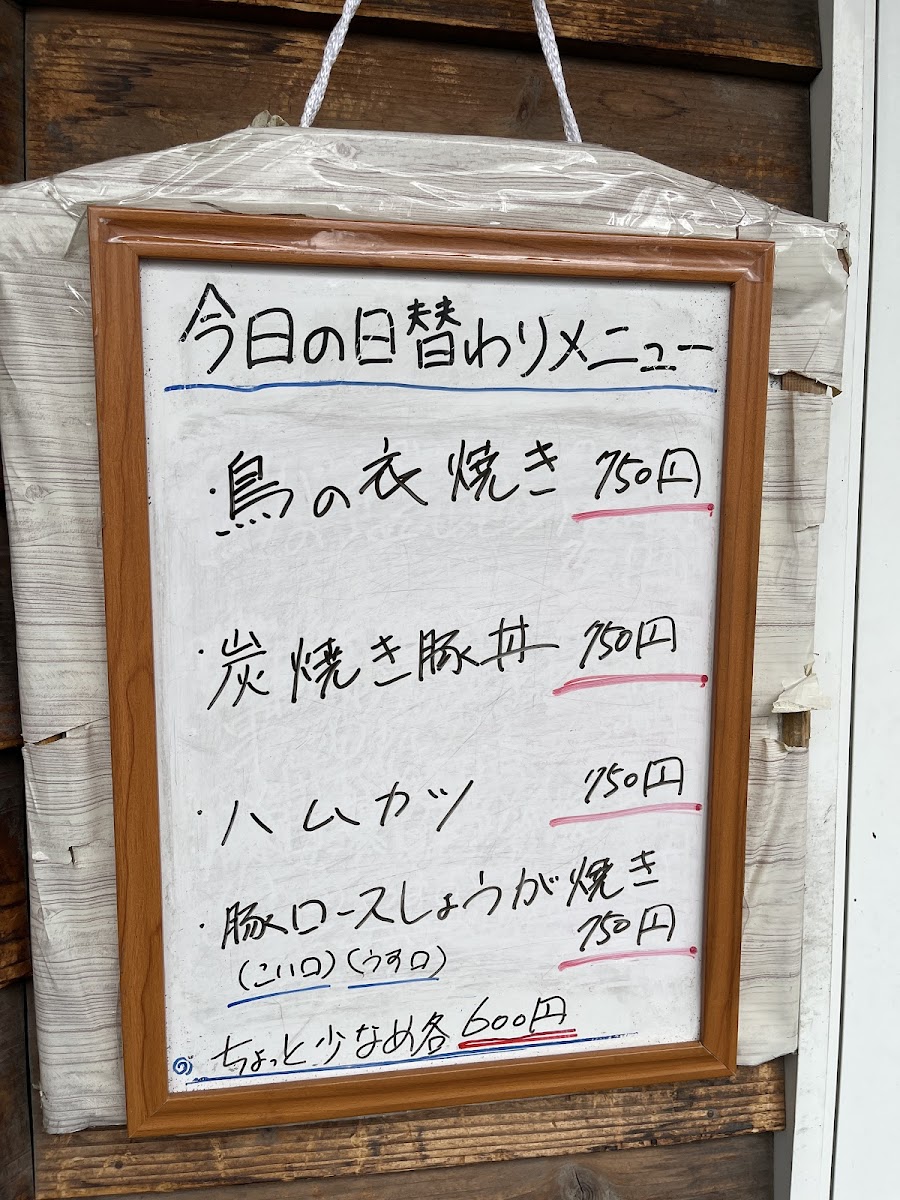 今日の日替わりメニュー
・鳥の衣焼き 750円
・炭焼き豚丼 750円
・ハムカツ 750円
・豚ロースしょうが焼き
750円
(こい口)(うす口)
ちょっと少なめ各600円